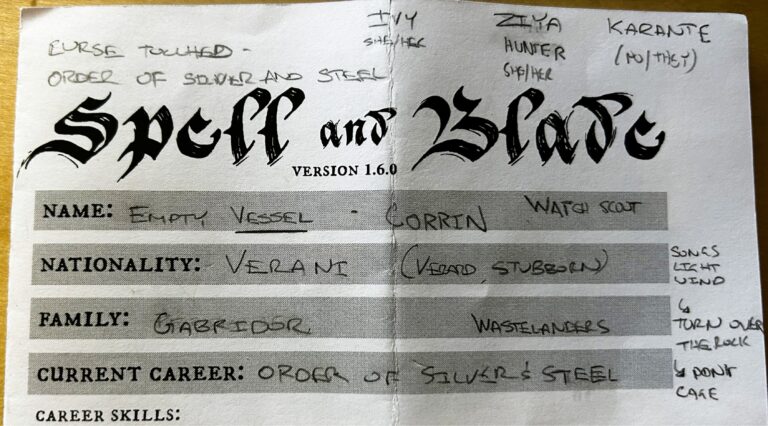 IVY
SHE/HER
ZIYA
HUNTER
SHE/HER
KARANTE
(NO/THEY)
CURSE TOUCHED -
ORDER OF SILVER AND STEEL
Spell and Blade
VERSION 1.6.0
NAME: EMPTY VESSEL - CORRIN WATCH SCOUT
NATIONALITY: VERANI (VERARD, STUBBORN)
FAMILY: GABRIDOR WASTELANDERS
CURRENT CAREER: ORDER OF SILVER & STEEL
SONGS
LIGHT
WIND
↳ TURN OVER
THE ROCK
↳ DON'T
CARE
CAREER SKILLS: